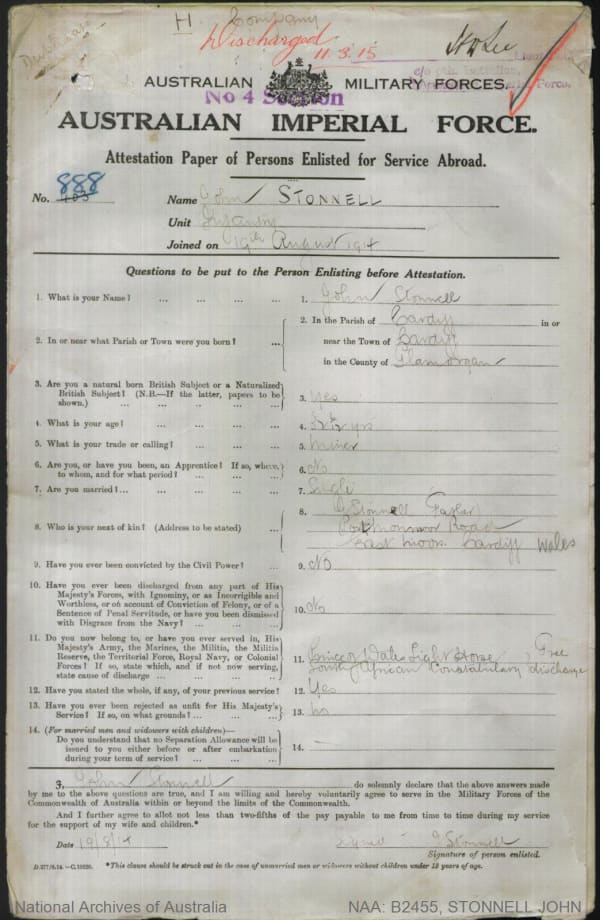 H Company
Duplicate
Discharged
11.3.15
AUSTRALIAN MILITARY FORCES.
No 4 Section
AUSTRALIAN IMPERIAL FORCE.
Attestation Paper of Persons Enlisted for Service Abroad.
No. 888
Name John Stonnell
Unit Infantry
Joined on 19th August 1914
Questions to be put to the Person Enlisting before Attestation.
1. What is your Name? ... ... ... ... 1. John Stonnell
2. In or near what Parish or Town were you born? ... 2. In the Parish of Cardiff in or
near the Town of Cardiff
in the County of Glamorgan
3. Are you a natural born British Subject or a Naturalized
British Subject? (N.B.—If the latter, papers to be
shown.) ... ... ... ... 3. Yes
4. What is your age? ... ... ... 4. yrs
5. What is your trade or calling? ... ... ... 5. Miner
6. Are you, or have you been, an Apprentice? If so, where,
to whom, and for what period? ... ... ... 6. No
7. Are you married? ... ... ... ... 7. Single
8. Who is your next of kin? (Address to be stated) ... 8. Stonnell Father
Road
Cardiff Wales
9. Have you ever been convicted by the Civil Power? ... 9. No
10. Have you ever been discharged from any part of His
Majesty's Forces, with Ignominy, or as Incorrigible and
Worthless, or on account of Conviction of Felony, or of a
Sentence of Penal Servitude, or have you been dismissed
with Disgrace from the Navy? ... ... ... 10. No
11. Do you now belong to, or have you ever served in, His
Majesty's Army, the Marines, the Militia, the Militia
Reserve, the Territorial Force, Royal Navy, or Colonial
Forces? If so, state which, and if not now serving,
state cause of discharge ... ... ... 11. Prince of Wales Light Horse Free
South African Constabulary discharge
12. Have you stated the whole, if any, of your previous service? 12. Yes
13. Have you ever been rejected as unfit for His Majesty's
Service? If so, on what grounds? ... ... ... 13. No
14. (For married men and widowers with children)—
Do you understand that no Separation Allowance will be
issued to you either before or after embarkation
during your term of service? ... ... 14. —
I, John Stonnell do solemnly declare that the above answers made
by me to the above questions are true, and I am willing and hereby voluntarily agree to serve in the Military Forces of the
Commonwealth of Australia within or beyond the limits of the Commonwealth.
And I further agree to allot not less than two-fifths of the pay payable to me from time to time during my service
for the support of my wife and children.*
Date 19/8/14 Signed J Stonnell
Signature of person enlisted.
*This clause should be struck out in the case of unmarried men or widowers without children under 18 years of age.
National Archives of Australia NAA: B2455, STONNELL JOHN